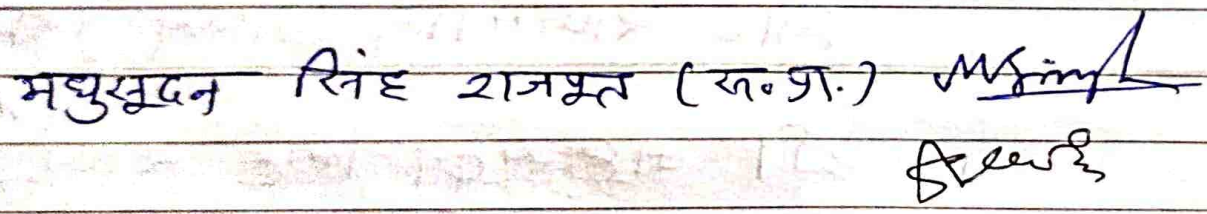 मधुसूदन सिंह राजपूत (स.प्रा.) MSingh